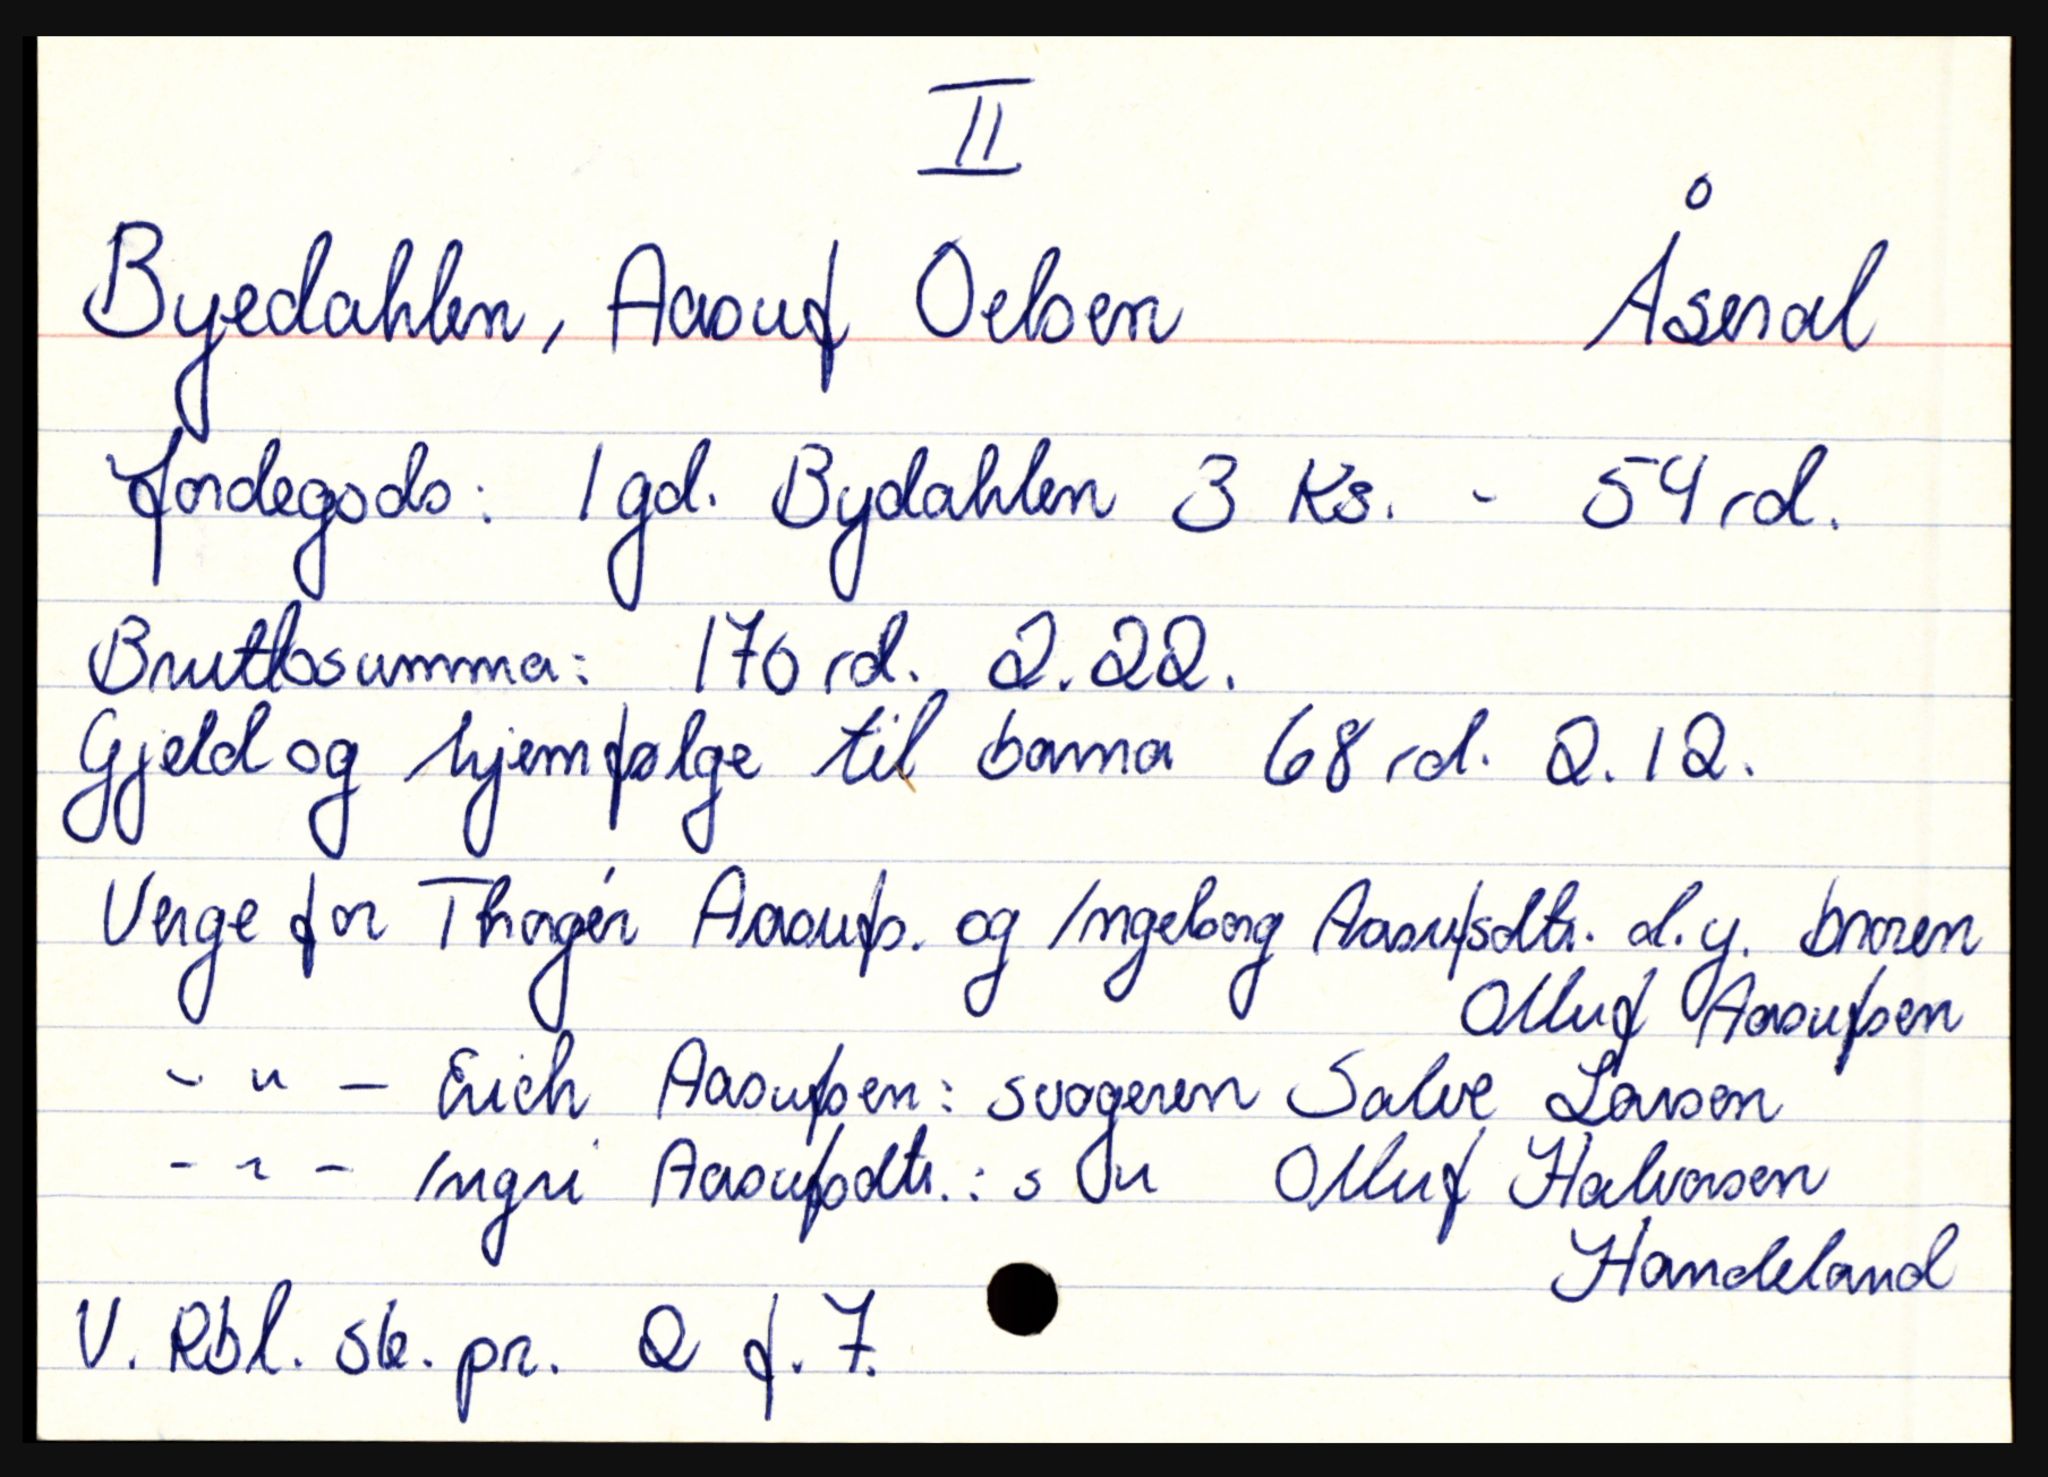 II
Byedahlen, Aasuf Oelsen Åseral
Jordegods: 1 gd. Bydahlen 3 Ks. - 54 rd.
Bruttosumma: 170 rd. 2.22.
Gjeld og hjemfølge til barna 68 rd. 2.12.
Verge for Thorgér Aasufs. og Ingeborg Aasufsdtr. d.y. broren
Olluf Aasufsen
- " - Erich Aasufsen: svogeren Salve Larsen
- " - Ingri Aasufsdtr.: s " Olluf Halvorsen
Handeland
V. Rbl. sk. pr. 2 f. 7.